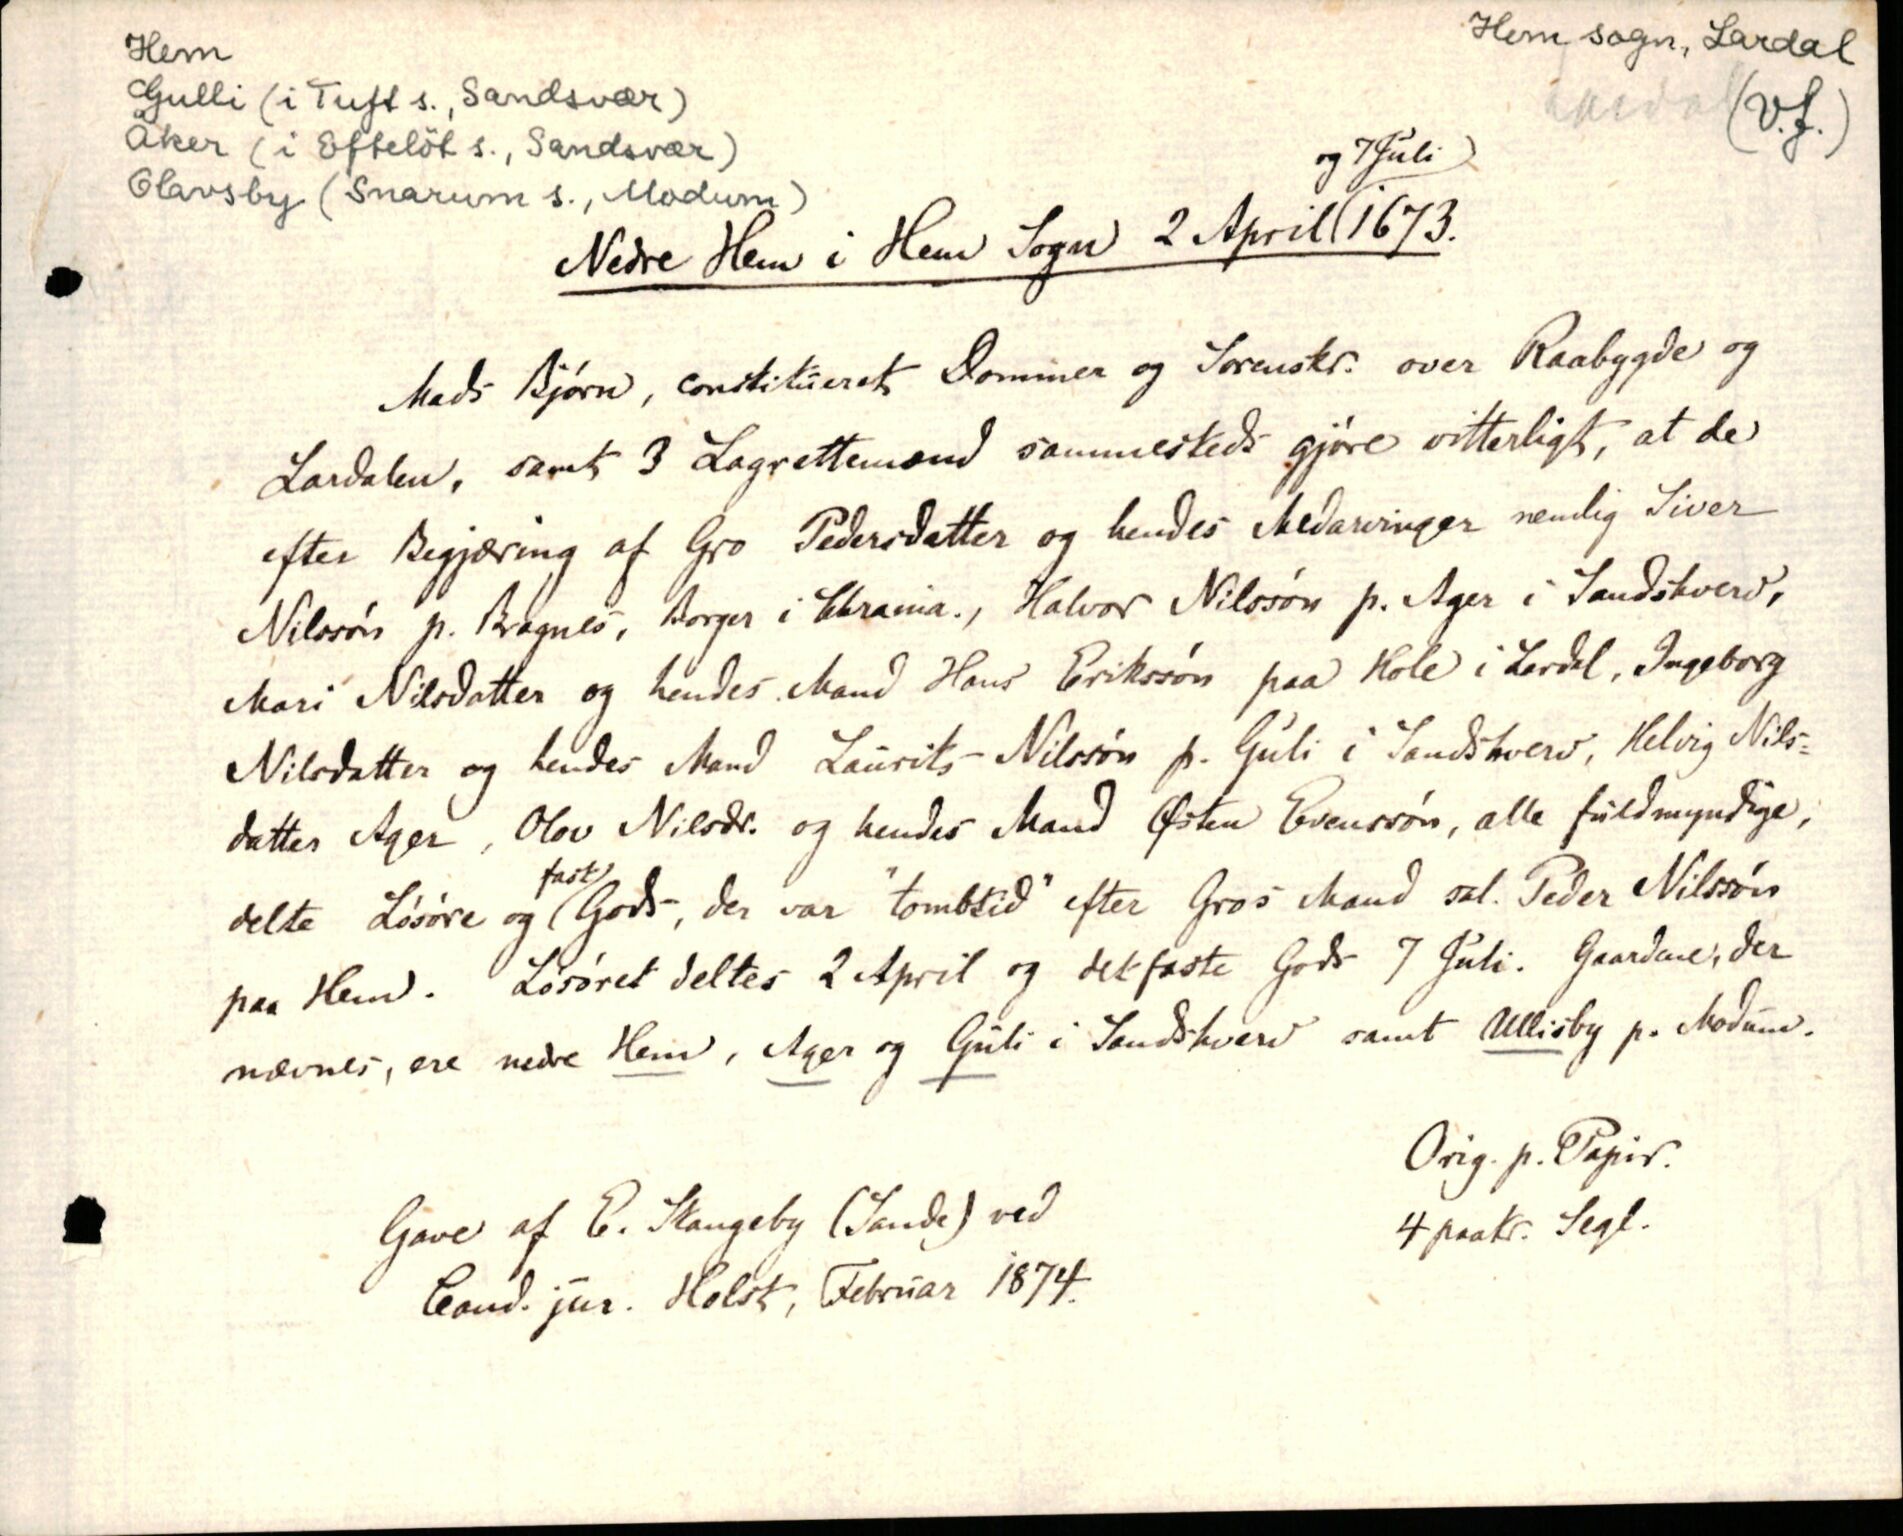 Hem
Gulli (i Tuft s., Sandsvær)
Åker (i Efteløt s., Sandsvær)
Olavsby (Snarum s., Modum)
Hem sogn, Lardal
(V.f.)
og 7 Juli
Nedre Hem i Hem Sogn 2 April 1673.
Mads Bjørn, constitueret Dommer og Sorenskr. over Raabygde og
Lardalen, samt 3 Lagrettemænd sammesteds gjøre vitterligt, at de
efter Begjæring af Gro Pedersdatter og hendes Medarvinger nemlig Siver
Nilssøn p. Bragnes, Borger i Chrania., Halvor Nilssøn p. Ager i Sandshverv,
Mari Nilsdatter og hendes Mand Hans Erikssøn paa Hole i Lardal, Ingeborg
Nilsdatter og hendes Mand Laurits Nilssøn p. Guli i Sandshverv, Helvig Nils=
datter Ager, Olov Nilsdr. og hendes Mand Østen Evenssøn, alle fuldmyndige,
delte Løsøre og fast Gods, der var "tombsid" efter Gros Mand sal. Peder Nilssøn
paa Hem. Løsøret deltes 2 April og det faste Gods 7 Juli. Gaardene, der
nævnes, ere nedre Hem, Ager og Guli i Sandshverv samt Ullisby p. Modum.
Orig. p. Papir.
4 paatr. Segl.
Gave af E. Skangeby (Sande) ved
Cand. jur. Holst, Februar 1874.